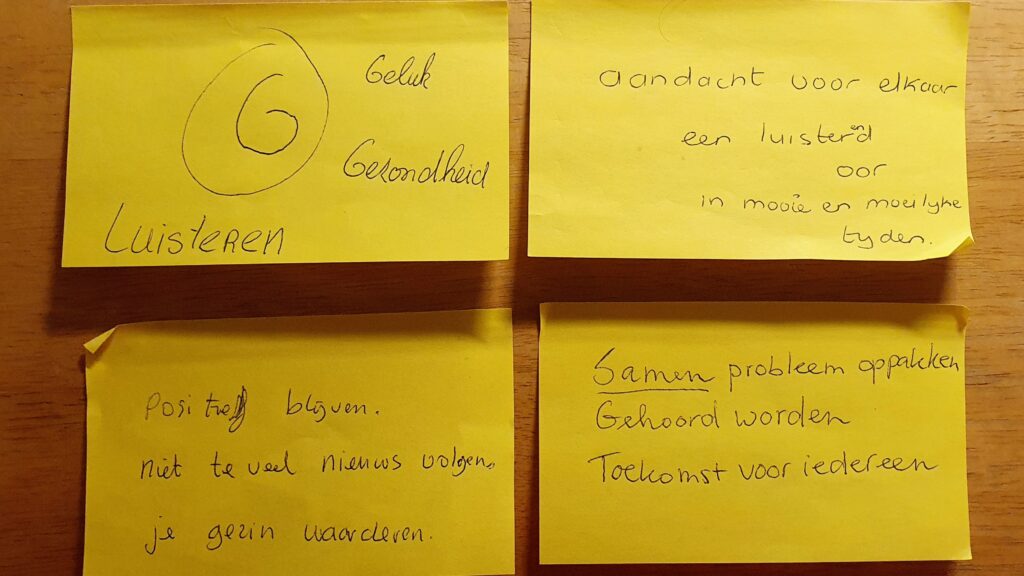 G
Geluk
Gezondheid
Luisteren
aandacht voor elkaar
een luisterend
oor
in mooie en moeilyke
tyden.
Positief blijven.
niet te veel nieuws volgen.
je gezin waarderen.
Samen probleem oppakken
Gehoord worden
Toekomst voor iedereen